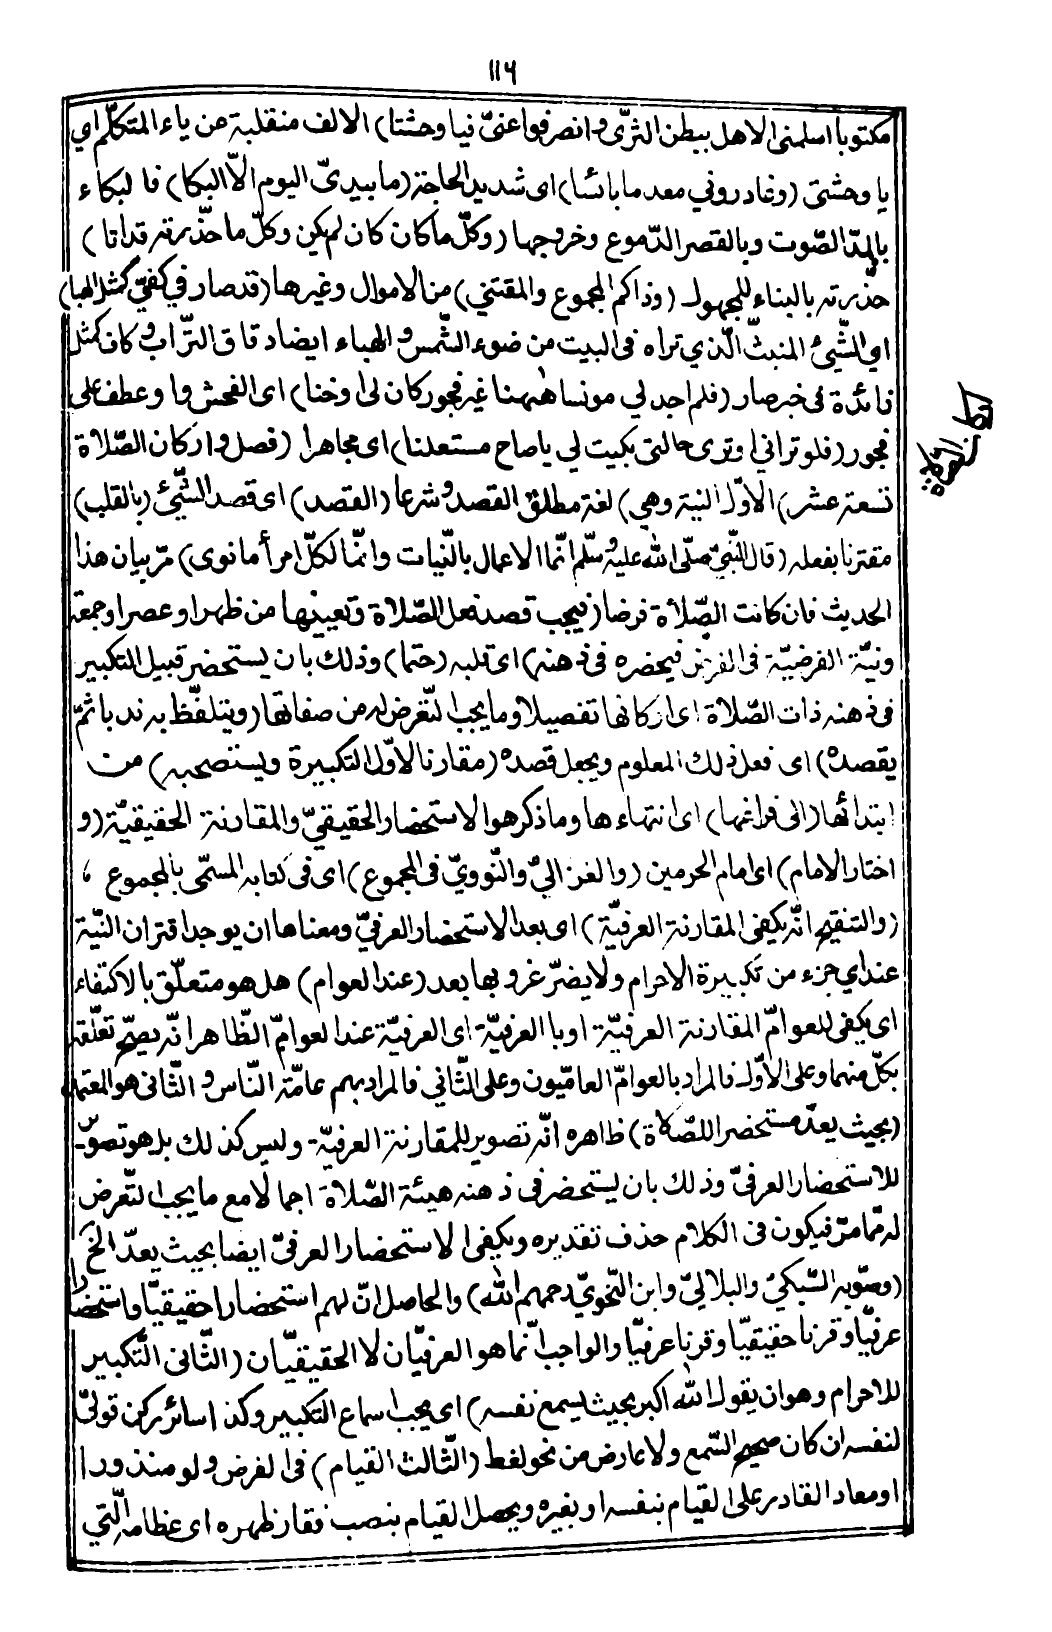 ١١٦
مكتوبا اسلمنى الاهل ببطن الثرّى وانصرفوا عنىّ فيا وحشتا) الالف منقلبة من ياء المتكلّم اي
يا وحشتى (وغادرونى معدما بائسا) اى شديد الحاجة (ما بيدىّ اليوم الاّ البكا) فالبكاء
بالمدّ الصّوت وبالقصر الدّموع وخروجها (وكلّ ما كان كان لم يكن وكلّ ما حذّرته قد اتا)
حذّرته بالبناء للمجهول (وذاكم المجموع والمقتنى) من الاموال وغيرها (قد صار في كفيّ كمثل الهبا)
اي الشّيئ المنبثّ الّذي تراه فى البيت من ضوء الشّمس و الهباء ايضا دقاق التّراب وكاف كمثل
زائدة فى خبر صار (فلم اجد لي مونسا هٰهنا غير فجور كان لى او خنا) اى الفحش واو عطف على
فجور (فلو ترانى او ترى حالتى بكيت لى يا صاح مستعلنا) اى مجاهرا (فصل واركان الصّلاة
تسعة عشر) الاوّل النية وهي) لغة مطلق القصد و شرعا (القصد) اى قصد الشّيئ (بالقلب)
مقترنا بفعله (قال النّبيّ صلّى الله عليه وسلّم انّما الاعمال بالنّيات وانّما لكلّ امرأ ما نوى) مرّ بيان هذا
الحديث فان كانت الصّلاة فرضا (فيجب قصد فعل الصّلاة وتعيينها من ظهر او عصر او جمعة
ونيّة الفرضيّة فى الفرض فيحضره فى ذهنه) اى قلبه (حتما) وذلك بان يستحضر قبيل التكبير
فى ذهنه ذات الصّلاة اى اركانها تفصيلا وما يجب التّعرض له من صفاتها (ويتلفّظ به ندبا ثمّ
يقصده) اى فعل ذلك المعلوم ويجعل قصده (مقارنا لاوّل التكبيرة ويستصحبه) من
ابتدائها (الى فراغها) اى انتهاءها وما ذكر هو الاستحضار الحقيقيّ والمقارنة الحقيقيّة (و
اختار الامام) اى امام الحرمين (والغزاليّ والنّوويّ فى المجموع) اى فى كتابه المسمّى بالمجموع ،
(والتنقيح انّه يكفى المقارنة العرفيّة) اى بعد الاستحضار العرفيّ ومعناها ان يوجد اقتران النّيّة
عند اي جزء من تكبيرة الاحرام ولا يضرّ عزوبها بعد (عند العوام) هل هو متعلّق بالاكتفاء
اى يكفى للعوامّ المقارنة العرفيّة او بالعرفيّة اى العرفيّة عند العوامّ الظّاهر انّه يصحّ تعلّقه
بكلّ منهما وعلى الاوّل فالمراد بالعوامّ العاميّون وعلى الثّاني فالمراد بهم عامّة النّاس و الثّانى هو المعتمد
(بحيث يعدّ مستحضرا للصّلاة) ظاهره انّه تصوير للمقارنة العرفيّة وليس كذلك بل هو تصوير
للاستحضار العرفىّ وذلك بان يستحضر فى ذهنه هيئة الصّلاة اجمالا مع ما يجب التّعرض
له ممّا مرّ فيكون فى الكلام حذف تقديره ويكفى الاستحضار العرفىّ ايضا بحيث يعدّ الخ
(وصوّبه السّبكيّ والبلاليّ وابن النّحويّ رحمهم الله) والحاصل انّ لهم استحضارا حقيقيّا واستحضارا
عرفيّا وقرنا حقيقيّا وقرنا عرفيّا والواجب انّما هو العرفيّان لا الحقيقيّان (الثّانى التّكبير
للاحرام وهو ان يقول الله اكبر بحيث يسمع نفسه) اى يجب اسماع التكبير وكذا سائر ركن قوليّ
لنفسه ان كان صحيح السّمع ولا عارض من نحو لغط (الثّالث القيام) فى الفرض ولو منذورا
او معاد القادر على القيام بنفسه او بغيره ويحصل القيام بنصب فقار ظهره اى عظامه الّتي